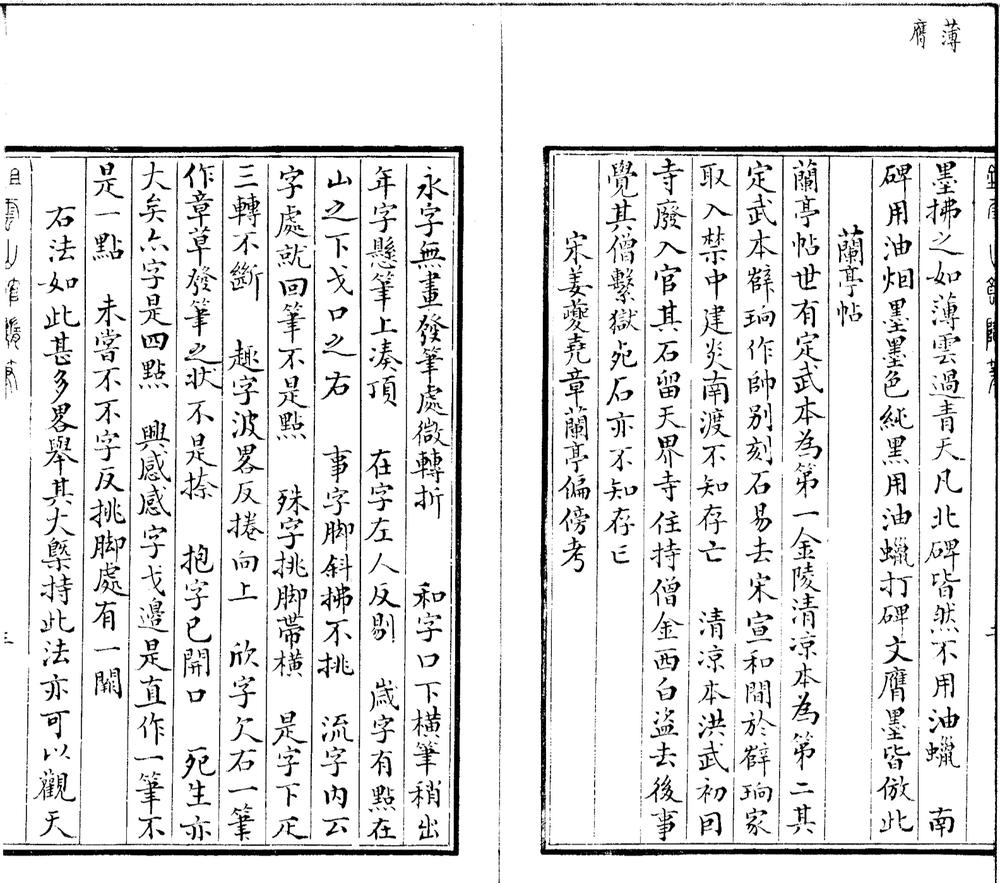 薄
膺
墨拂之如薄雲過青天凡北碑皆然不用油蠟　南
碑用油烟墨墨色純黑用油蠟打碑文膺墨皆倣此
蘭亭帖
蘭亭帖世有定武本為第一金陵清凉本為第二其
定武本薛珦作帥别刻石易去宋宣和間於薛珦家
取入禁中建炎南渡不知存亡　清凉本洪武初因
寺廢入官其石留天界寺住持僧金西白盜去後事
覺其僧繫獄死石亦不知存亡
宋姜夔堯章蘭亭偏傍考
永字無畫發筆處微轉折　和字口下橫筆稍出
年字懸筆上凑頂　在字左人反剔　歳字有點在
山之下戈口之右　事字脚斜拂不挑　流字内厶
字處就回筆不是點　殊字挑脚帶橫　是字下疋
三轉不斷　趣字波畧反捲向上　欣字欠右一筆
作章草發筆之状不是捺　抱字已開口　死生亦
大矣亦字是四點　興感感字戈邊是直作一筆不
是一點　未嘗不不字反挑脚處有一闕
右法如此甚多畧舉其大槩持此法亦可以觀天
三